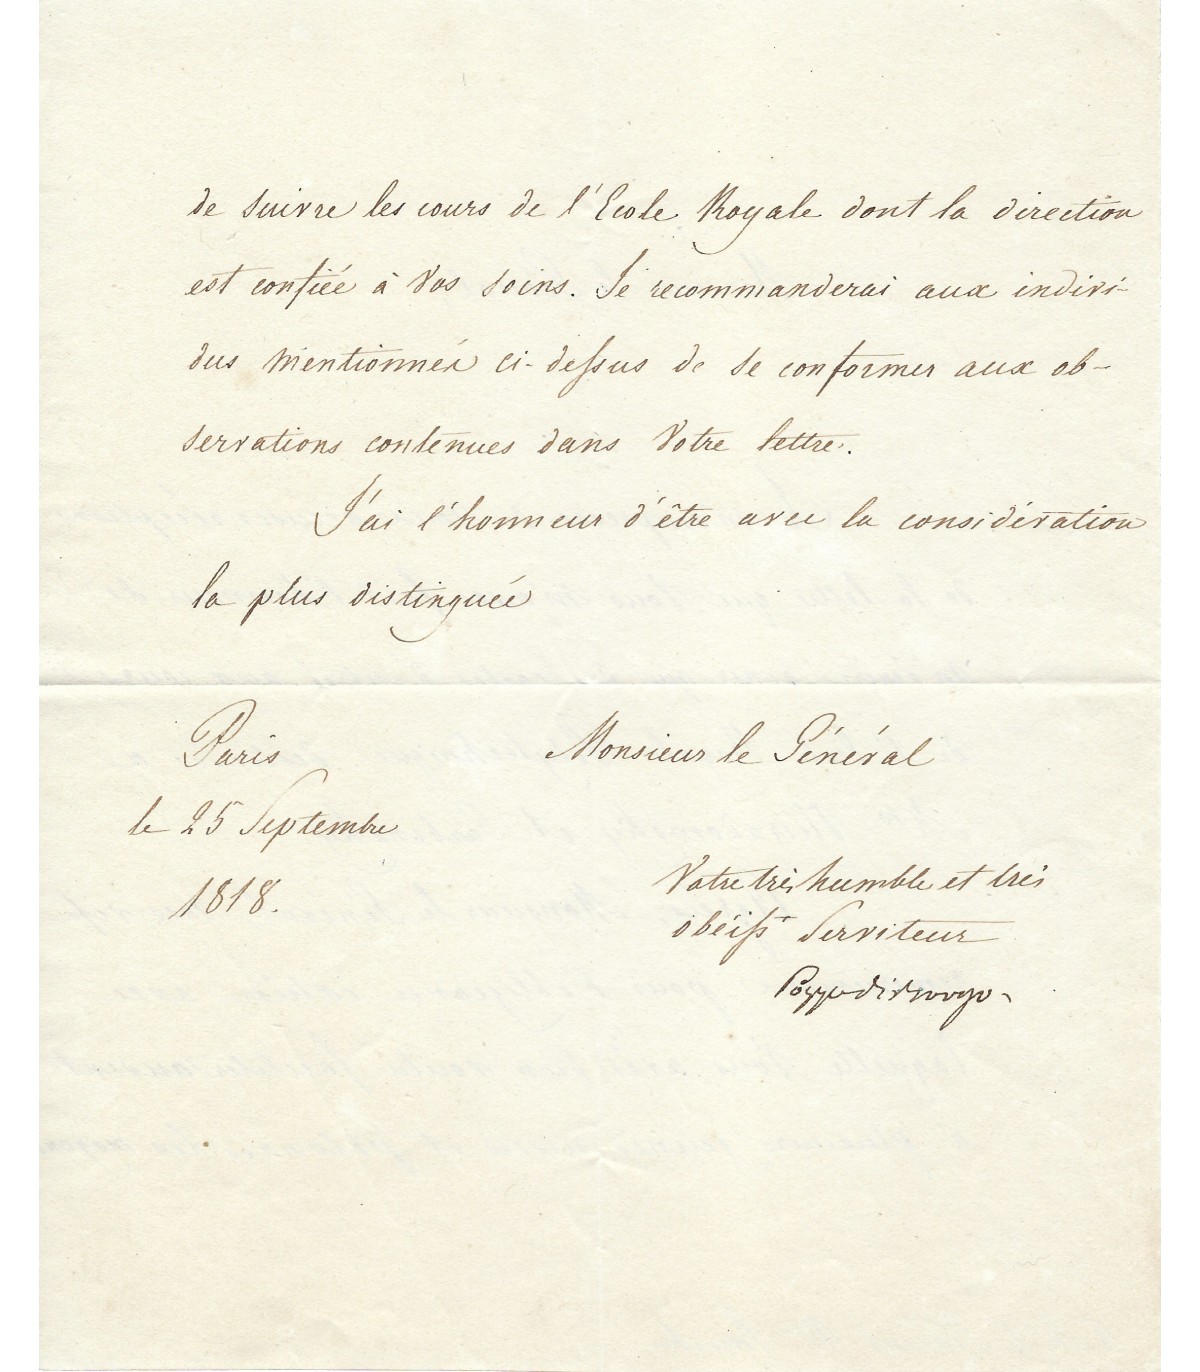 de suivre les cours de l'Ecole Royale dont la direction
est confiée à Vos soins. Je recommanderai aux indivi-
dus mentionnés ci-dessus de se conformer aux ob-
servations contenues dans Votre lettre.
J'ai l'honneur d'être avec la considération
la plus distinguée
Paris
le 25 Septembre
1818.
Monsieur le Général
Votre très humble et très
obéisst Serviteur
Pozzo di Borgo